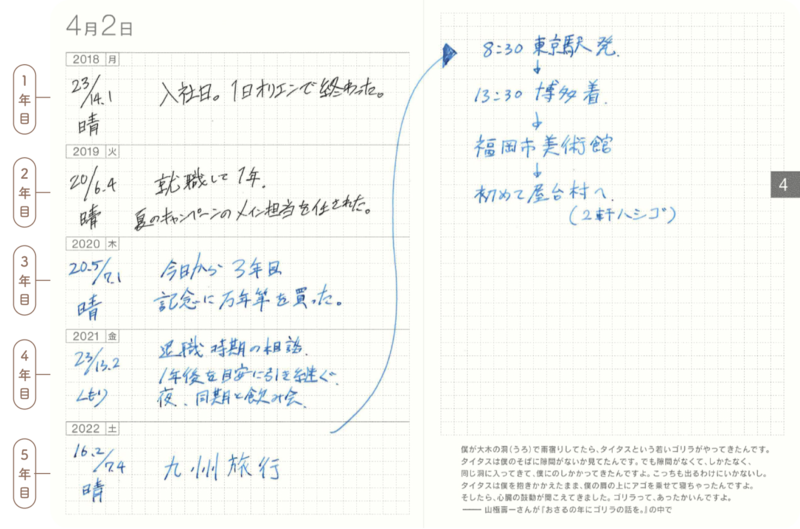 4月2日
1年目
2018 月
23/14.1
晴
入社日。1日オリエンで終わった。
2年目
2019 火
20/6.4
晴
就職して1年。
夏のキャンペーンのメイン担当を任された。
3年目
2020 木
20.5/7.1
晴
今日から3年目
記念に万年筆を買った。
4年目
2021 金
23/13.2
くもり
退職時期の相談。
1年後を目安に引き継ぐ。
夜、同期と飲み会。
5年目
2022 土
16.2/7.4
晴
九州旅行
8:30 東京駅発。
↓
13:30 博多着
↓
福岡市美術館
↓
初めて屋台村へ。
(2軒ハシゴ)
4
僕が大木の洞(うろ)で雨宿りしてたら、タイタスという若いゴリラがやってきたんです。
タイタスは僕のそばに隙間がないか見てたんです。でも隙間がなくて、しかたなく、
同じ洞に入ってきて、僕にのしかかってきたんですよ。こっちも出るわけにいかないし。
タイタスは僕を抱きかかえたまま、僕の肩の上にアゴを乗せて寝ちゃったんですよ。
そしたら、心臓の鼓動が聞こえてきました。ゴリラって、あったかいんですよ。
―― 山極壽一さんが『おさるの年にゴリラの話を。』の中で